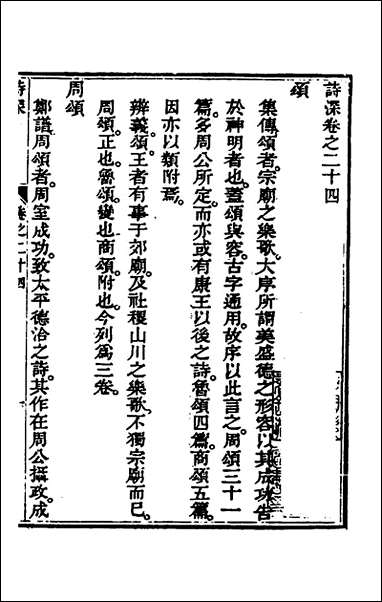 詩深卷之二十四
頌
集傳頌者。宗廟之樂歌。大序所謂美盛德之形容。以其成功告
於神明者也。蓋頌與容。古字通用。故序以此言之。周頌三十一
篇。多周公所定。而亦或有康王以後之詩。魯頌四篇。商頌五篇。
因亦以類附焉。
辨義頌。王者有事于郊廟。及社稷山川之樂歌。不獨宗廟而已。
周頌。正也。魯頌。變也。商頌。附也。今列爲三卷。
周頌
鄭譜。周頌者。周室成功。致太平德洽之詩。其作在周公攝政。成
詩深
卷之二十四